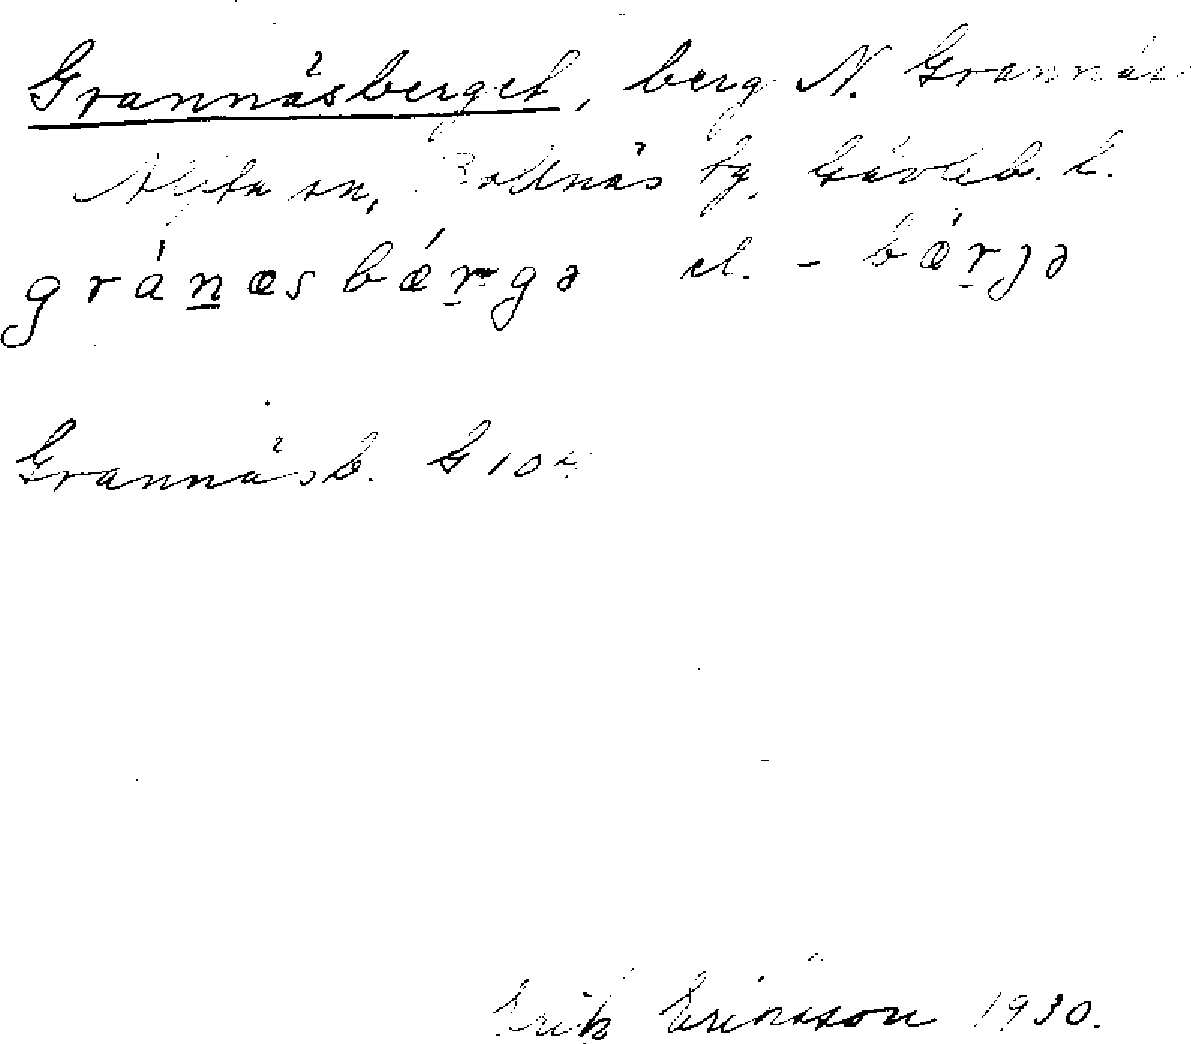 Grannåsberget, berg N. Grannås
Alfta sn, Bollnäs tg, Gävleb. l.
gránæsbǽrgə el. - bǽrjə
Grannåsb. G 104
Erik Eriksson 1930.